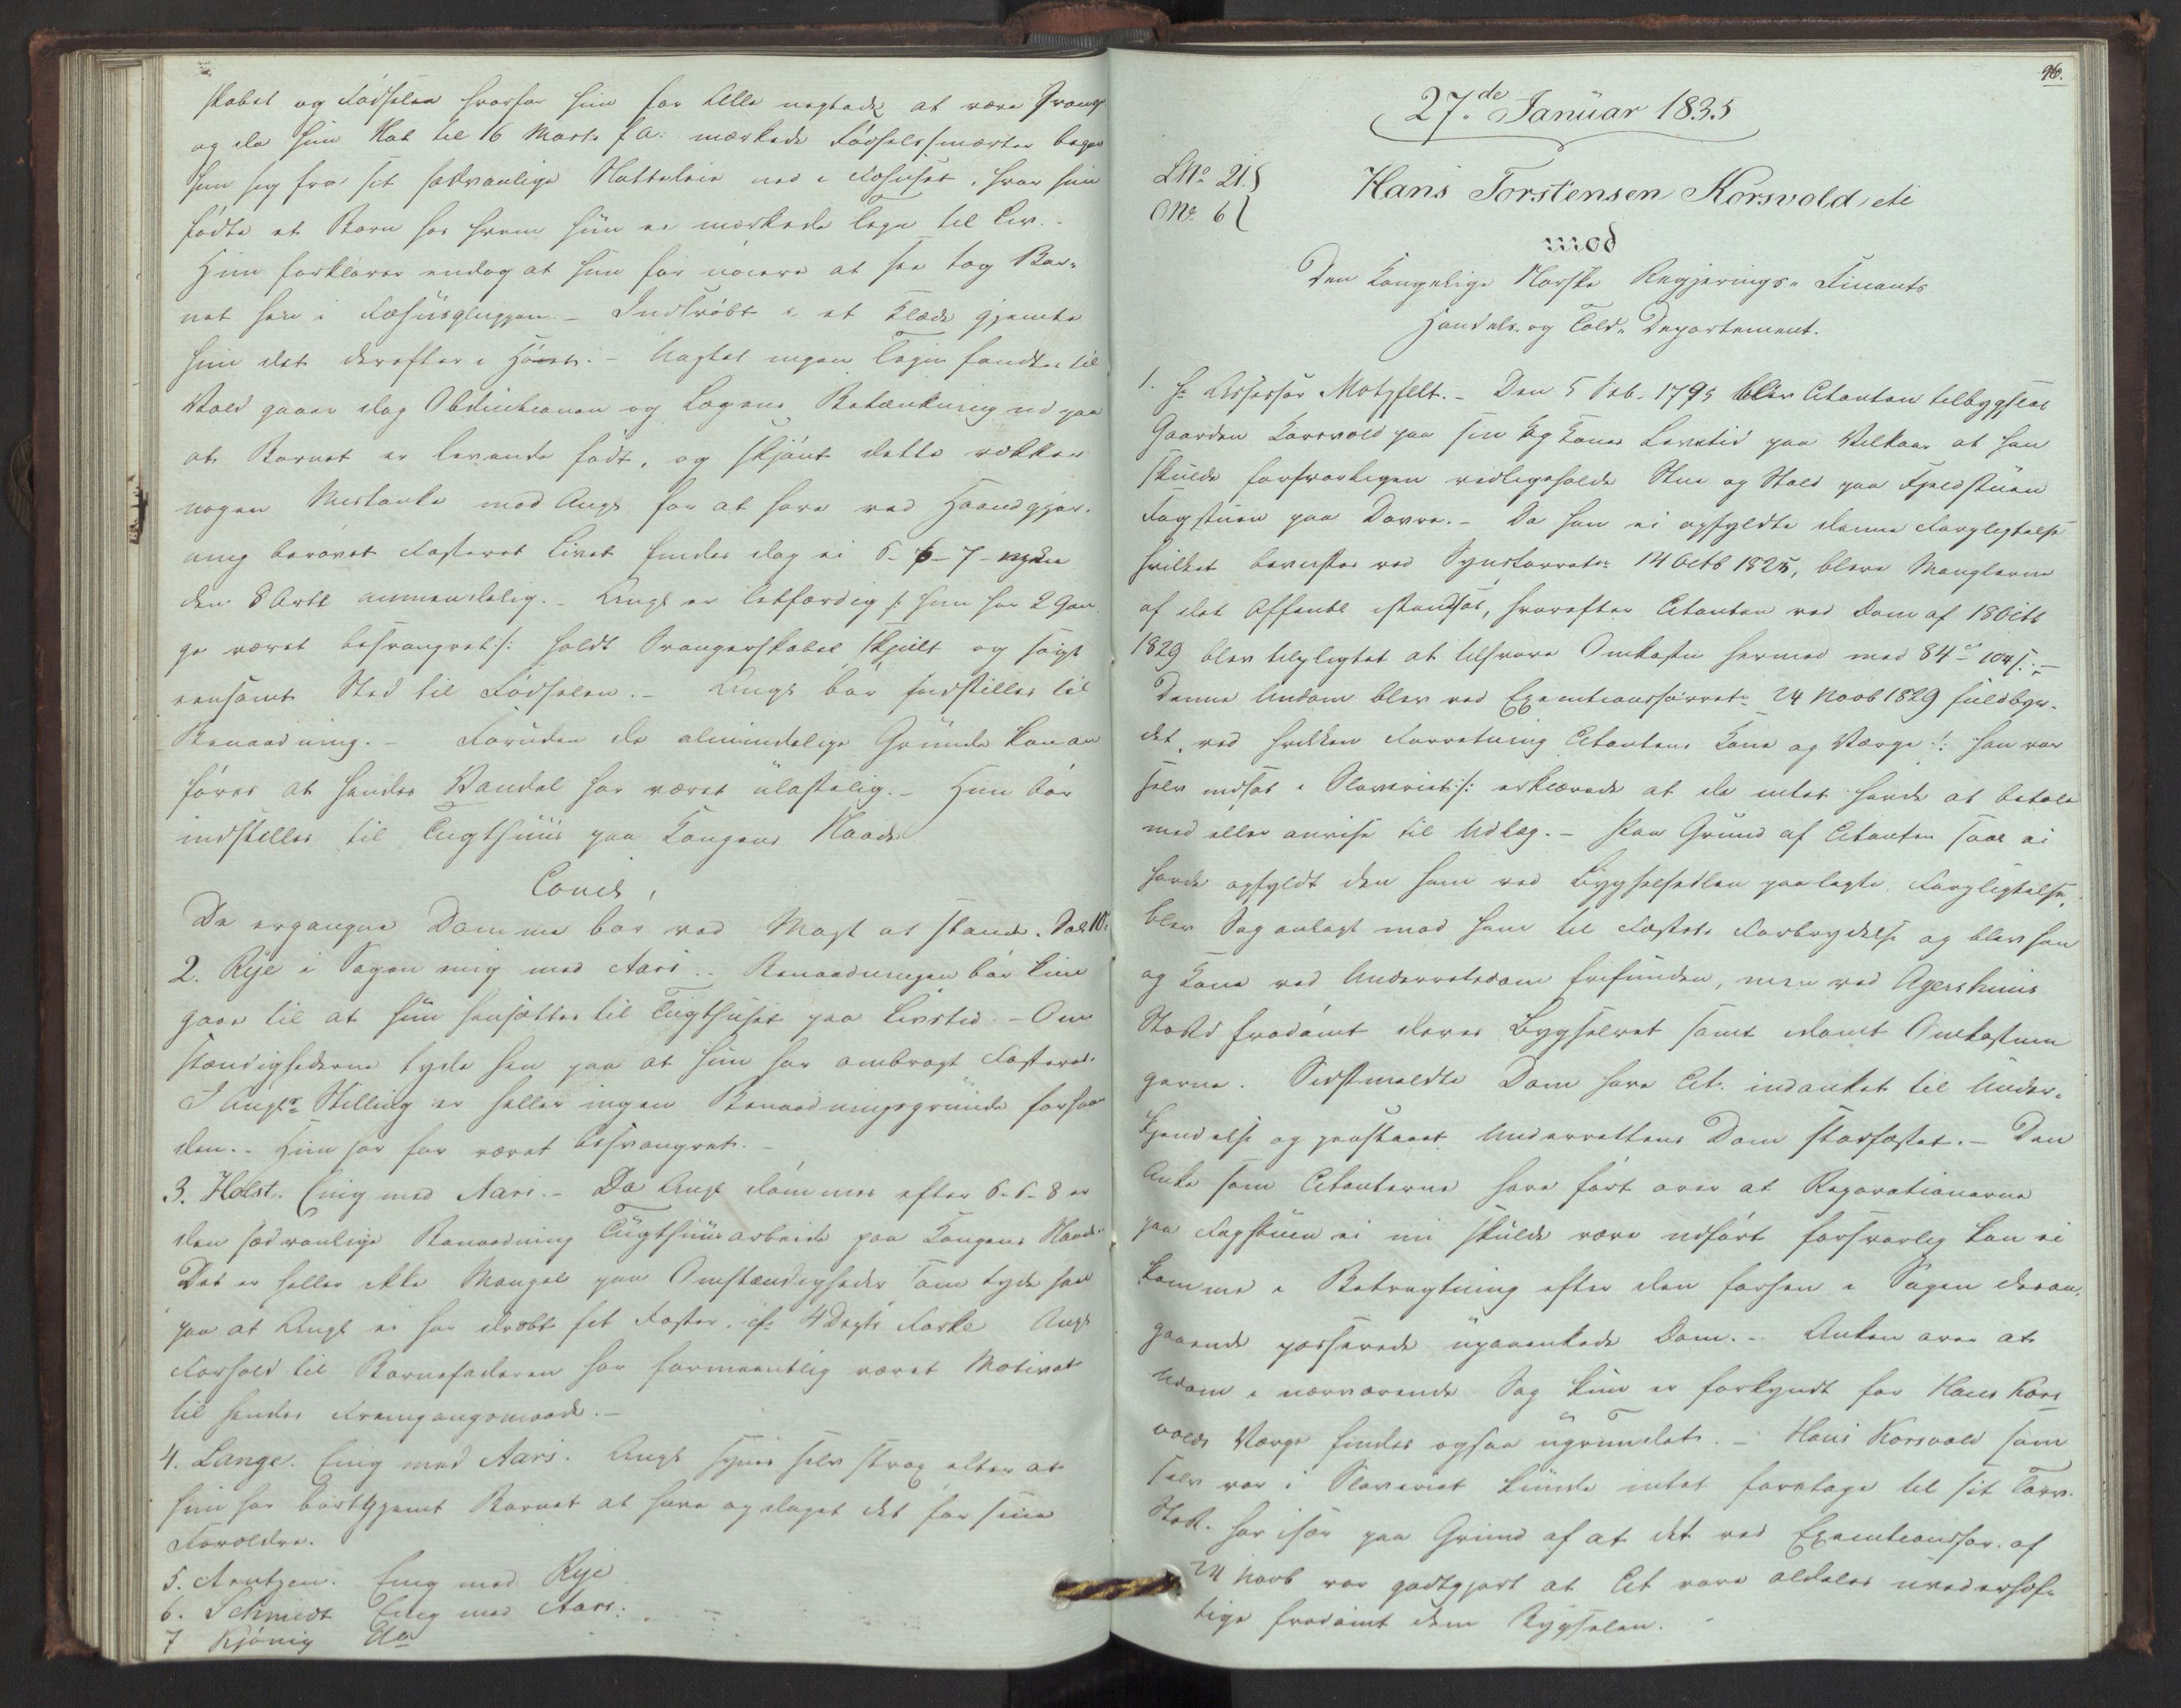 skabet og Fødselen hvorfor hun for Alle negtede at være Svang
og da hun Nat til 16 Marts f. A. mærkede Fødselssmærter begav
hun sig fra sit sædvanlige Natteleie ned i Fæhuset, hvor hun
fødte et Barn hos hvem hun ei mærkede Tegn til Liv. -
Hun forklarer endog at hun før nøiere at see tog Bar-
net hen i Fæhusgluggen. - Indsvøbt i et Klæde gjemte
hun det derefter i Høet. - Uagtet ingen Tegn fandtes til
Vold gaaer dog Obductionen og Lægens Betænkning ud paa
at Barnet er levende født, og skjønt dette vækker
nogen Mistanke mod Angl for at have ved Haandgjer-
ning berøvet Fosteret Livet findes dog ei 6-6-7 men
den 8 Artl anvendelig. - Angl er letfærdig /: hun har 2 Gan
ge været besvangret :/ holdt Svangerskabet skjult og søgt
eensomt Sted til Fødselen. - Angl bør indstilles til
Benaadning. - Foruden de almindelige Grunde kan an
føres at hendes Vandel har været ulastelig. - Hun bør
indstilles til Tugthuus paa Kongens Naade
Concl,
De ergangne Domme bør ved Magt at stande. Sal 10.
2. Rye i Sagen enig med Aars. - Benaadningen bør kun
gaae til at hun hensættes til Tugthuset paa Livstid. - Om
stændighederne tyde hen paa at hun har ombragt Fosteret.
I Angls Stilling er heller ingen Benaadningsgrunde forhaan
den. - Hun har før været besvangret. -
3. Holst. Enig med Aars. - Da Angl dømmes efter 6-6-8 er
den sædvanlige Benaadning Tugthuusarbeide paa Kongens Naade
Det er heller ikke Mangel paa Omstændigheder som tyde hen
paa at Angl ei har dræbt sit Foster. cfr 4 Dags Angl
Forhold til Barnefaderen har formeentlig været Motivet
til hendes Fremgangsmaade. -
4. Lange. Enig med Aars. Angl synes selv strax efter at
hun har bortgjemt Barnet at have opdaget det for sine
Forældre.
5. Arntzen. Enig med Rye
6. Schmidt Enig med Aars.
7 Kjønig do
96.
27de Januar 1835
LNo 21.
ONo 6
Hans Torstensen Korsvold, etc
mod
Den Kongelige Norske Regjerings- Finants
Handels- og Told- Departement.
1. Hr Assessor Motzfelt. - Den 5 Feb. 1795 blev Citanten tilbygslet
Gaarden Korsvold paa sin og Kones Levetid paa Vilkaar at han
skulde forsvarligen vedligeholde Stue og Stald paa Fjeldstuen
Fogstuen paa Dovre. - Da han ei opfyldte denne Forpligtelse
hvilket beviistes ved Synsforretn 14 Octb 1825, bleve Manglerne
af det Offentl istandsat, hvorefter Citanten ved Dom af 18 Octb
1829 blev tilpligtet at tilsvare Omkostn hermed med 84 104 s. -
Denne Undom blev ved Executionsforretn 24 Novb 1829 fuldbyr-
det, ved hvilken Forretning Citantens Kone og Værge /: han var
selv indsat i Slaveriet :/ erklærede at de intet havde at betale
med eller anvise til Udlæg. - Paa Grund af Citanten saal ei
havde opfyldt den ham ved Bygselsedlen paalagte Forpligtelse,
blev Sag anlagt mod ham til Fæstets Forbrydelse og blev han
og Kone ved Underretsdom frifunden, men ved Agershuus
Stiftsd fradømt deres Bygselret samt idømt Omkostnin
gerne. Sidstmeldte Dom have Cit. indanket til Under-
kjendelse og paastaaet Underrettens Dom stadfæstet. - Den
Anke som Citanterne have ført over at Reparationerne
paa Fogstuen ei nu skulde være udført forsvarlig kan ei
komme i Betragtning efter den forhen i Sagen desan-
gaaende passerede upaaankede Dom. - Anken over at
Undom i nærværende Sag kun er forkyndt for Hans Kors
volds Værge findes ogsaa ugrundet. - Hans Korsvold som
selv var i Slaveriet kunde intet foretage til sit Tarv.
Stiftsd. har især paa Grund af at det ved Executionsfor. af
24 Novb var godtgjort at Cit vare aldeles uvederhæf-
tige fradømt dem Bygselen.